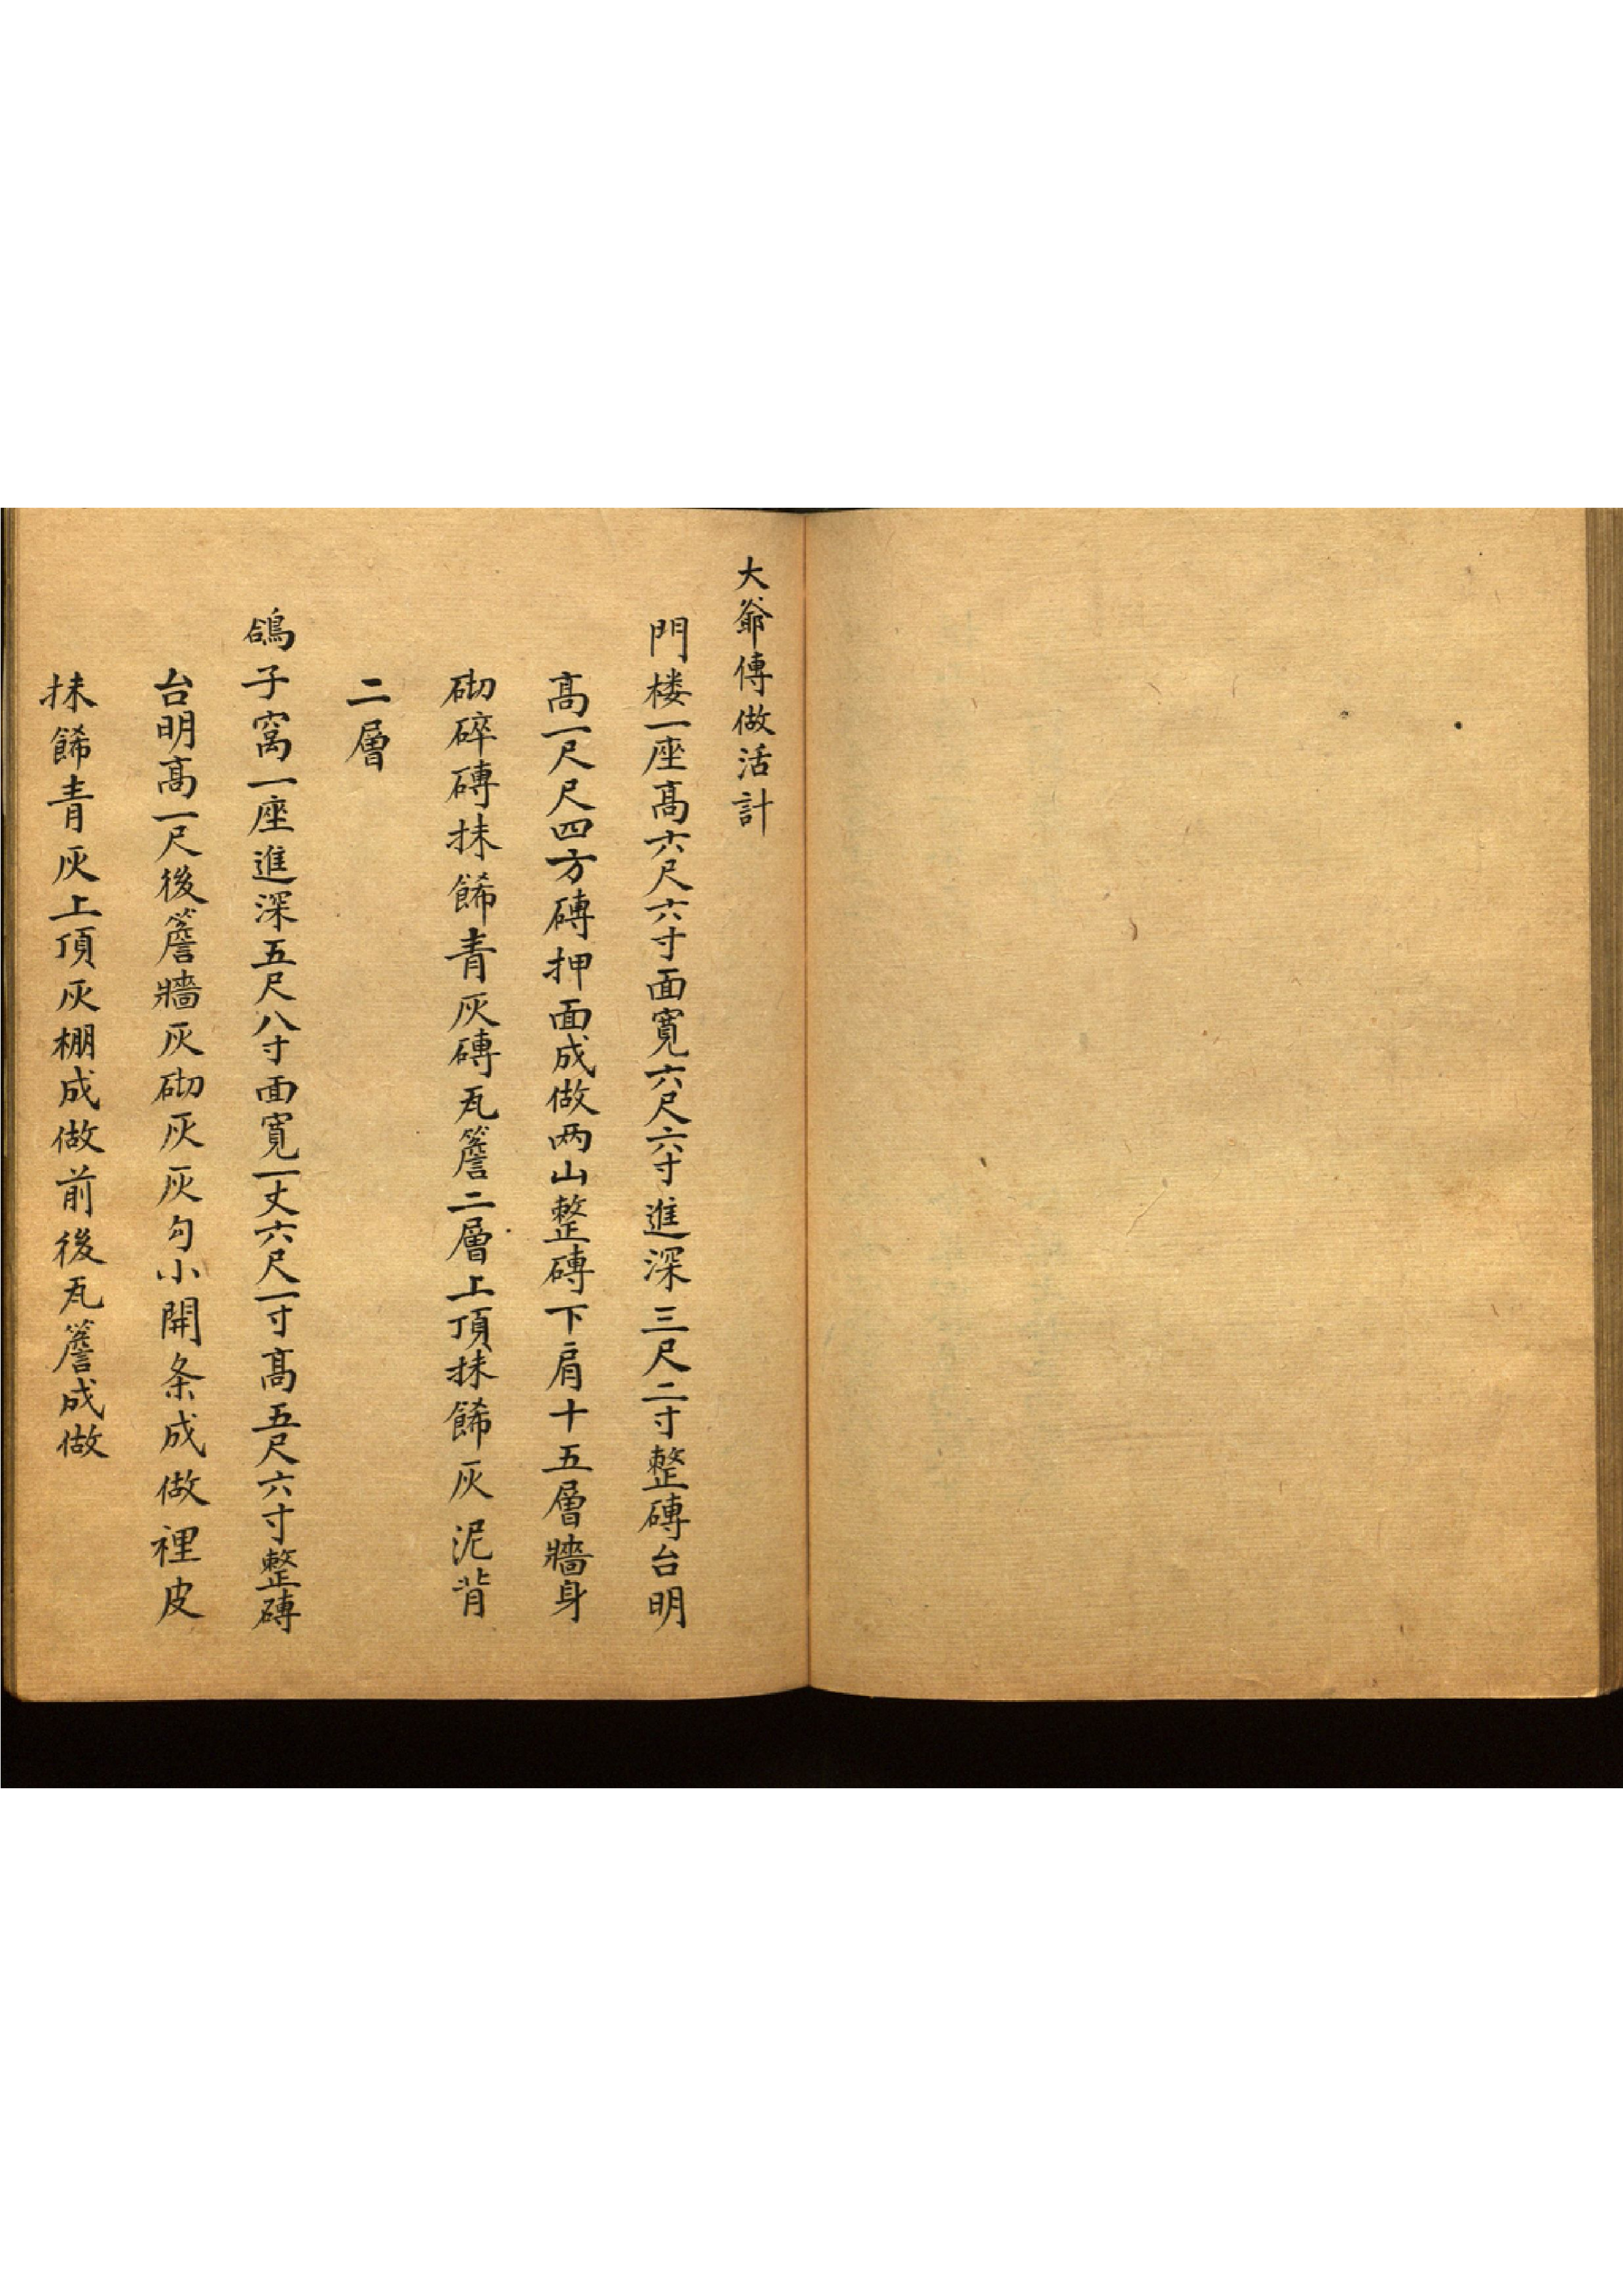 大爺傳做活計
門楼一座髙六尺六寸面寛六尺六寸進深三尺二寸整磚台明
髙一尺尺四方磚押面成做两山整磚下肩十五層牆身
砌碎磚抹餙青灰磚瓦簷二層上頂抹餙灰泥背
二層
鴿子窩一座進深五尺八寸面寛一丈六尺一寸髙五尺六寸整磚
台明髙一尺後簷牆灰砌灰灰勾小開条成做裡皮
抹餙青灰上頂灰棚成做前後瓦簷成做